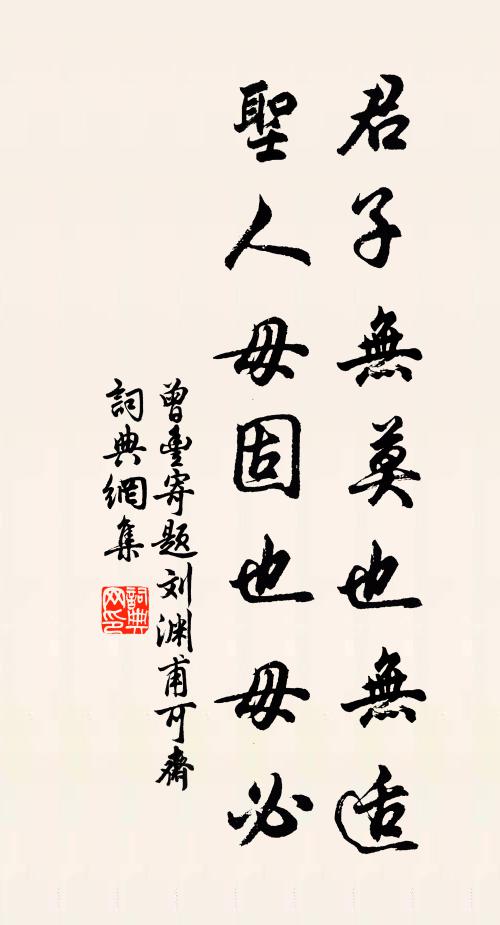 君子無莫也無适
聖人毋固也毋必
曾豊寄題刘渊甫可齋
詞典網集
詞典网印